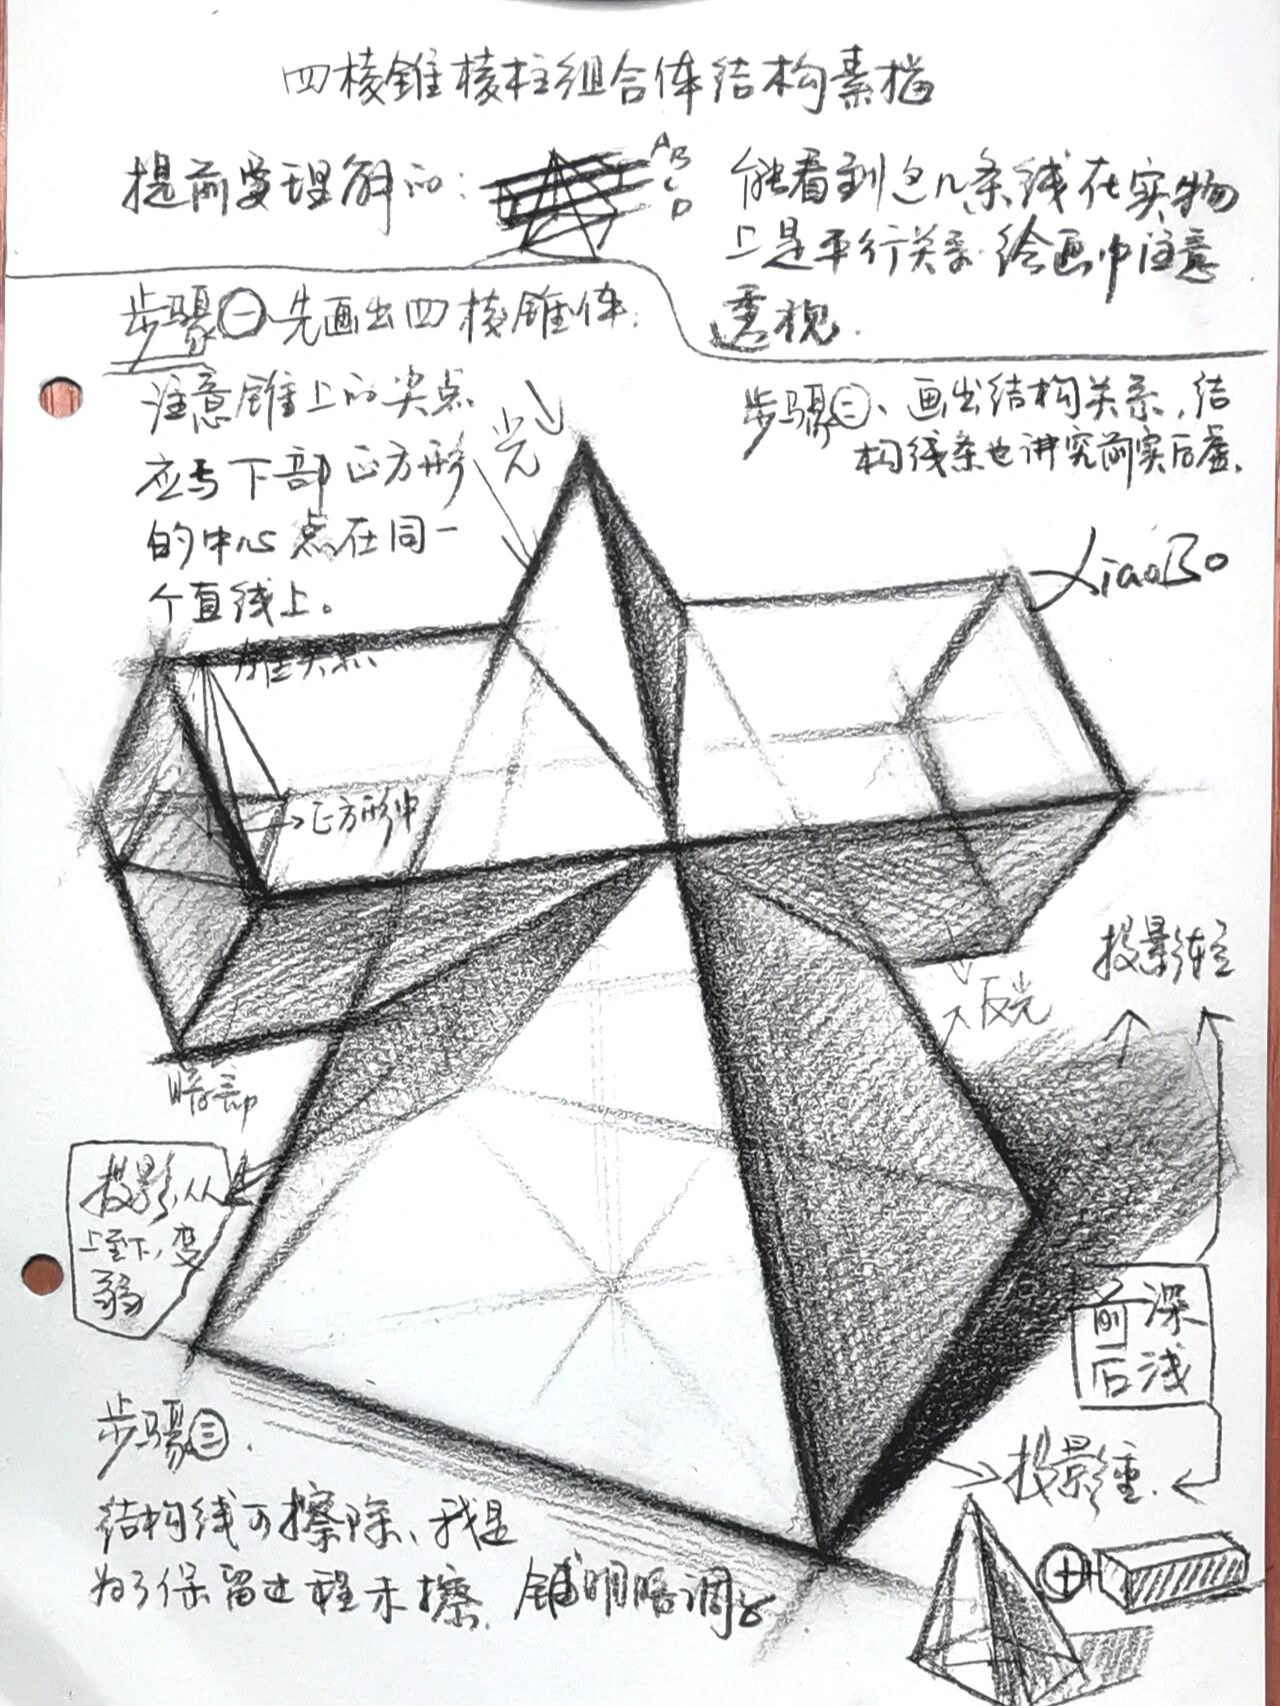 四棱锥棱柱组合体结构素描
提前要理解的:
A
B
C
D
能看到这几条线在实物
上是平行关系.绘画中注意
透视.
步骤一先画出四棱锥体.
注意锥上的尖点
应与下部正方形
的中心点在同一
个直线上。
光
步骤二、画出结构关系,结
构线条也讲究前实后虚.
XiaoBo
锥尖点
正方形中
投影轻
反光
暗部
投影从
上至下,变
弱
前深
后浅
投影重.
步骤三.
结构线可擦除、我是
为了保留过程未擦.铺明暗调子